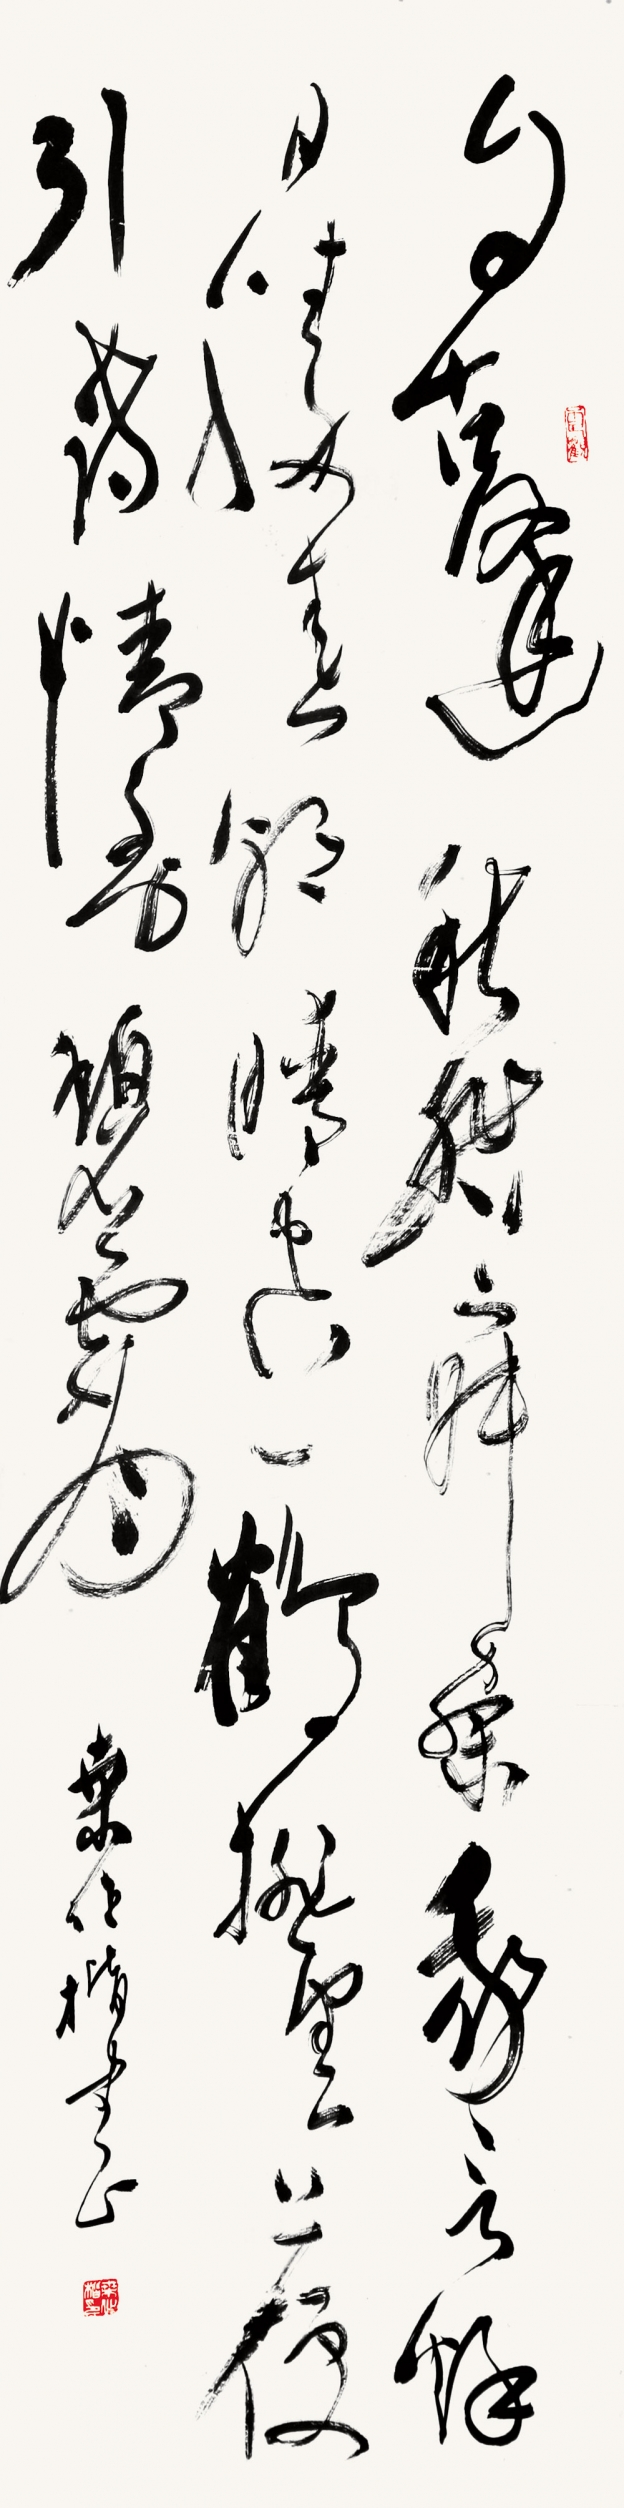 自古逢秋悲寂寥我言秋
日勝春朝晴空一鶴排雲上便
引詩情到碧霄
桑作楷書